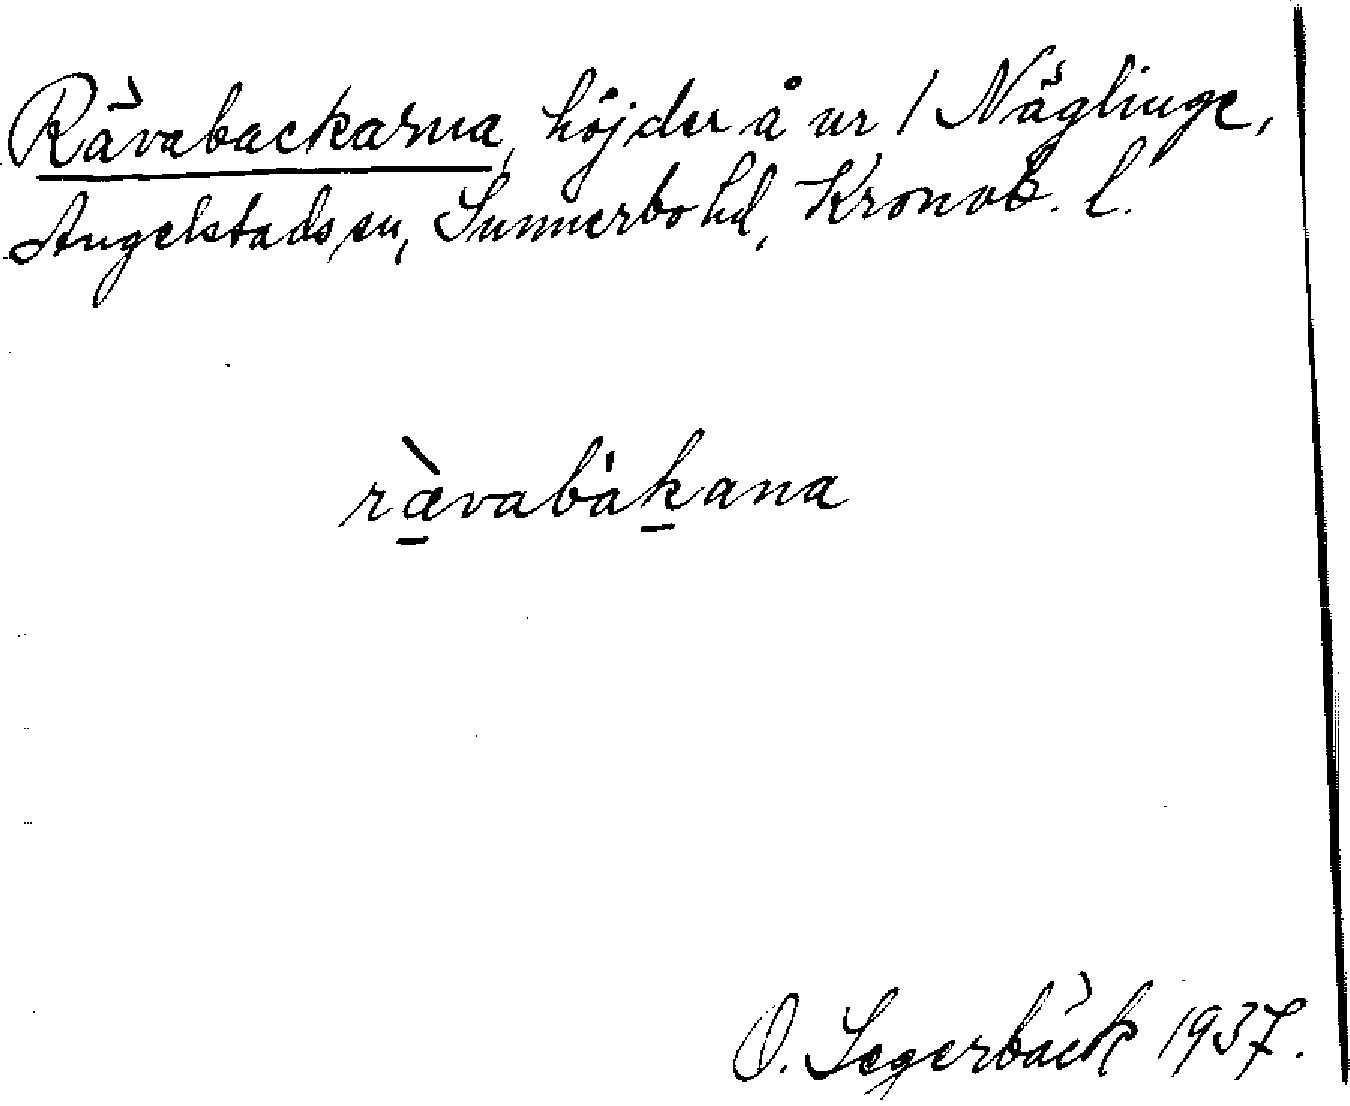 Rävabackarna, höjder å nr 1 Näglinge,
Angelstads sn, Sunnerbo hd, Kronob. l.
ràvabákana
O. Segerbäck 1937.